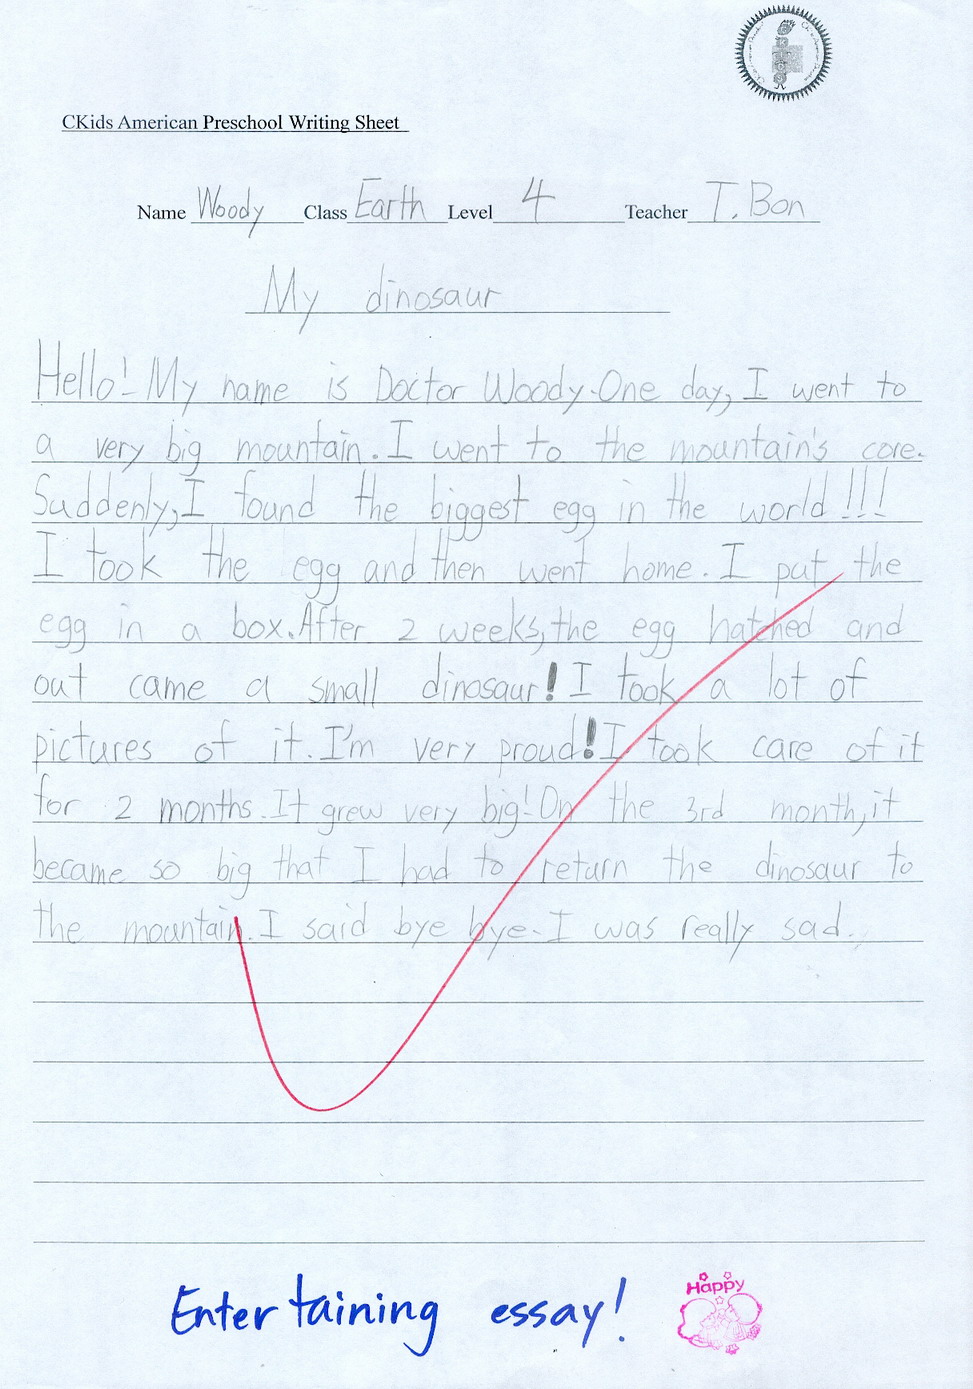 CKids American Preschool Writing Sheet
Name Woody Class Earth Level 4 Teacher T. Bon
My dinosaur
Hello! My name is Doctor Woody. One day, I went to
a very big mountain. I went to the mountain's core.
Suddenly, I found the biggest egg in the world!!!
I took the egg and then went home. I put the
egg in a box. After 2 weeks, the egg hatched and
out came a small dinosaur! I took a lot of
pictures of it. I'm very proud! I took care of it
for 2 months. It grew very big! On the 3rd month, it
became so big that I had to return the dinosaur to
the mountain. I said bye bye. I was really sad.
Entertaining essay!
Happy